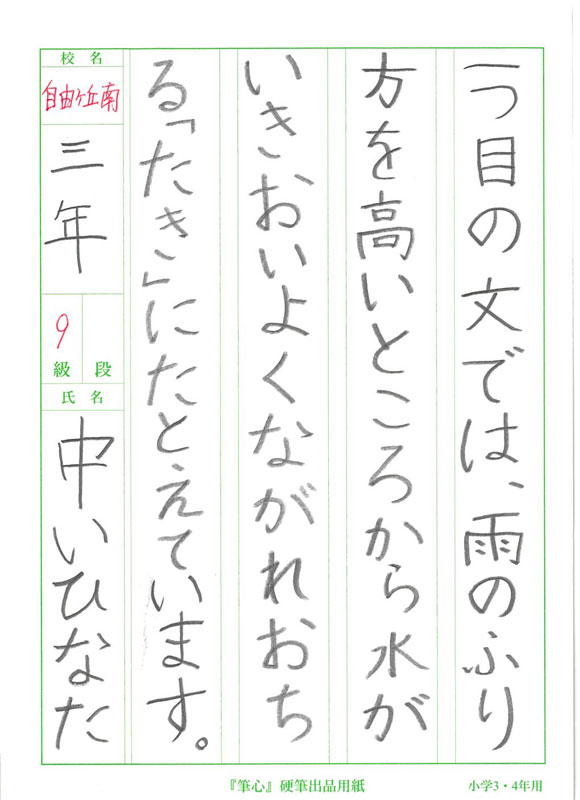 一つ目の文では、雨のふり
方を高いところから水が
いきおいよくながれおち
る「たき」にたとえています。
校名
自由ケ丘南
三年
9
級 段
氏名
中いひなた
『筆心』硬筆出品用紙
小学3・4年用